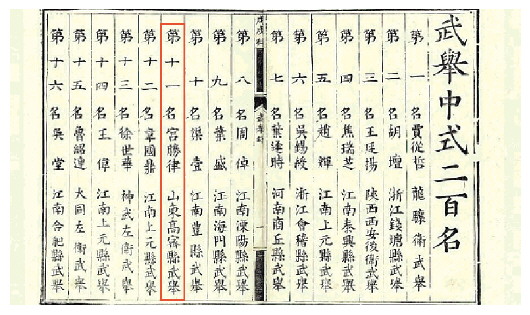 武舉中式二百名
第一名賈從哲 龍驤衛武舉
第二名胡壇 浙江錢塘縣武舉
第三名王廷揚 陝西西安後衛武舉
第四名焦瑞芝 江南泰興縣武舉
第五名趙 江南上元縣武舉
第六名吳錫綬 浙江會稽縣武舉
第七名葉逢時 河南商丘縣武舉
第八名周倬 江南溧陽縣武舉
第九名葉盛 江南海門縣武舉
第十名渠壹 江南豐縣武舉
第十一名宮勝律 山東高密縣武舉
第十二名韋國鼎 江南上元縣武舉
第十三名徐世華 神武左衛武舉
第十四名王倬 江南上元縣武舉
第十五名魯紹連 大同左衛武舉
第十六名吳堂 江南合肥縣武舉